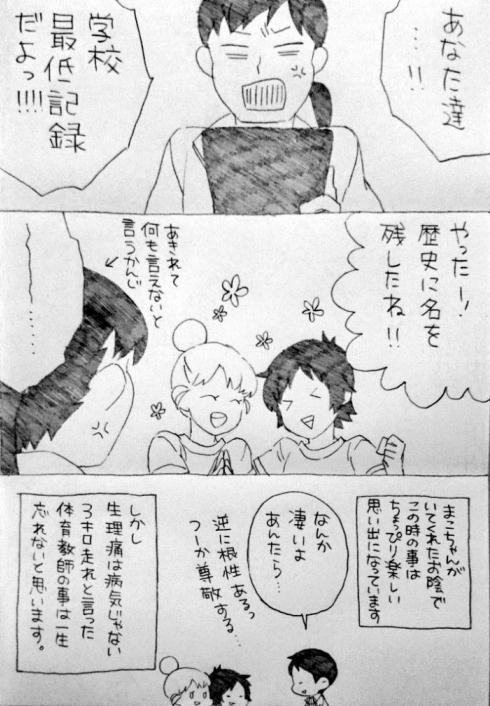 あなた達
…!!
学校
最低記録
だよっ!!!!
やったー!
歴史に名を
残したね!!
あきれて
何も言えないと
言うかんじ
……
まこちゃんが
いてくれたお陰で
この時の事は
ちょっぴり楽しい
思い出になっています
なんか
凄いよ
あんたら…
逆に根性あるっ
つーか尊敬する…
しかし
生理痛は病気じゃない
3キロ走れと言った
体育教師の事は一生
忘れないと思います。